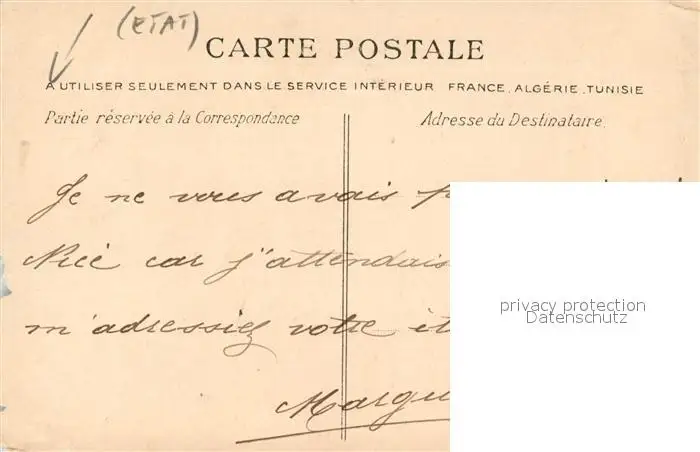 (ETAT)
CARTE POSTALE
A UTILISER SEULEMENT DANS LE SERVICE INTERIEUR FRANCE, ALGÉRIE, TUNISIE
Partie réservée à la Correspondance
Adresse du Destinataire
Je ne vous avais
Nice car j'attendais
m'adressiez votre
Margu
privacy protection
Datenschutz